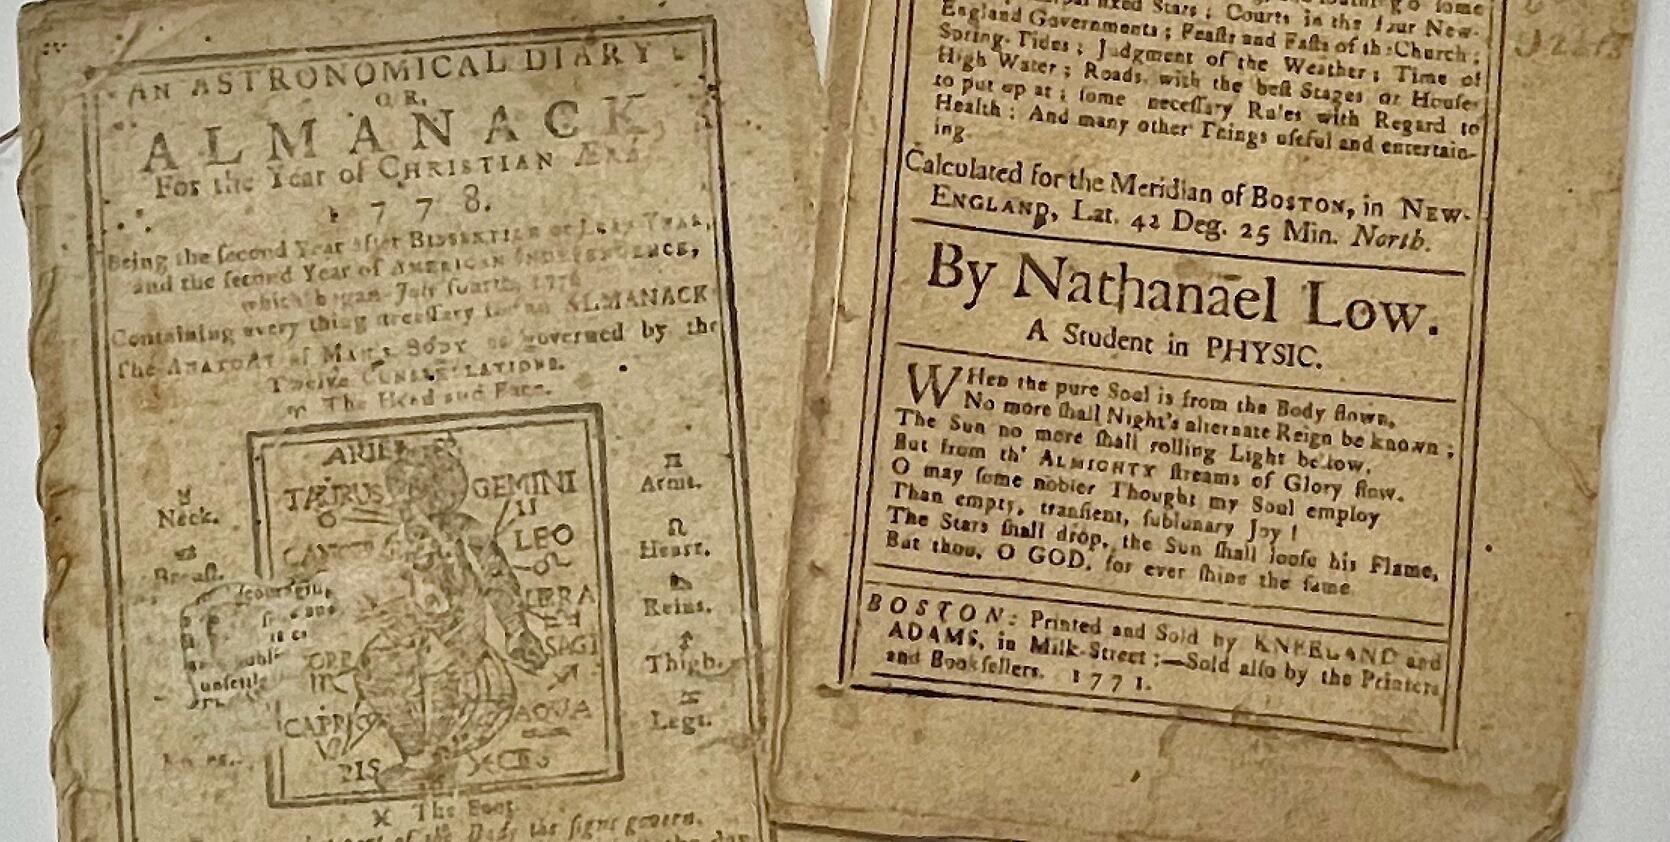 AN ASTRONOMICAL DIARY
OR,
ALMANACK,
For the Year of CHRISTIAN ÆRA
1778.
Being the second Year after BISSEXTILE or LEAP YEAR,
and the second Year of AMERICAN INDEPENDENCE,
which began July fourth, 1776
Containing every thing necessary for an ALMANACK
The ANATOMY of MAN's BODY as governed by the
Twelve CONSTELLATIONS.
♈ The Head and Face.
ARIE
TAURUS
GEMINI
♊
♉
LEO
♌
CANCER
LIBRA
SAGI
♐
♏
CAPRICO
♑
AQUA
PIS
♉
Neck.
♋
Breast.
♊
Arms.
♌
Heart.
♎
Reins.
♐
Thigh.
♒
Legs.
♓ The Feet
of the Body the signs govern.
some
fixed Stars; Courts in the four New-
England Governments; Feasts and Fasts of the Church;
Spring-Tides; Judgment of the Weather; Time of
High Water; Roads, with the best Stages or Houses
to put up at; some necessary Rules with Regard to
Health: And many other Things useful and entertain-
ing.
Calculated for the Meridian of BOSTON, in NEW-
ENGLAND, Lat. 42 Deg. 25 Min. North.
By Nathanael Low.
A Student in PHYSIC.
WHen the pure Soul is from the Body flown,
No more shall Night's alternate Reign be known;
The Sun no more shall rolling Light bestow,
But from th' ALMIGHTY streams of Glory flow.
O may some nobler Thought my Soul employ
Than empty, transient, sublunary Joy!
The Stars shall drop, the Sun shall loose his Flame,
But thou, O GOD, for ever shine the same
BOSTON: Printed and Sold by KNEELAND and
ADAMS, in Milk-Street;—Sold also by the Printers
and Booksellers. 1771.